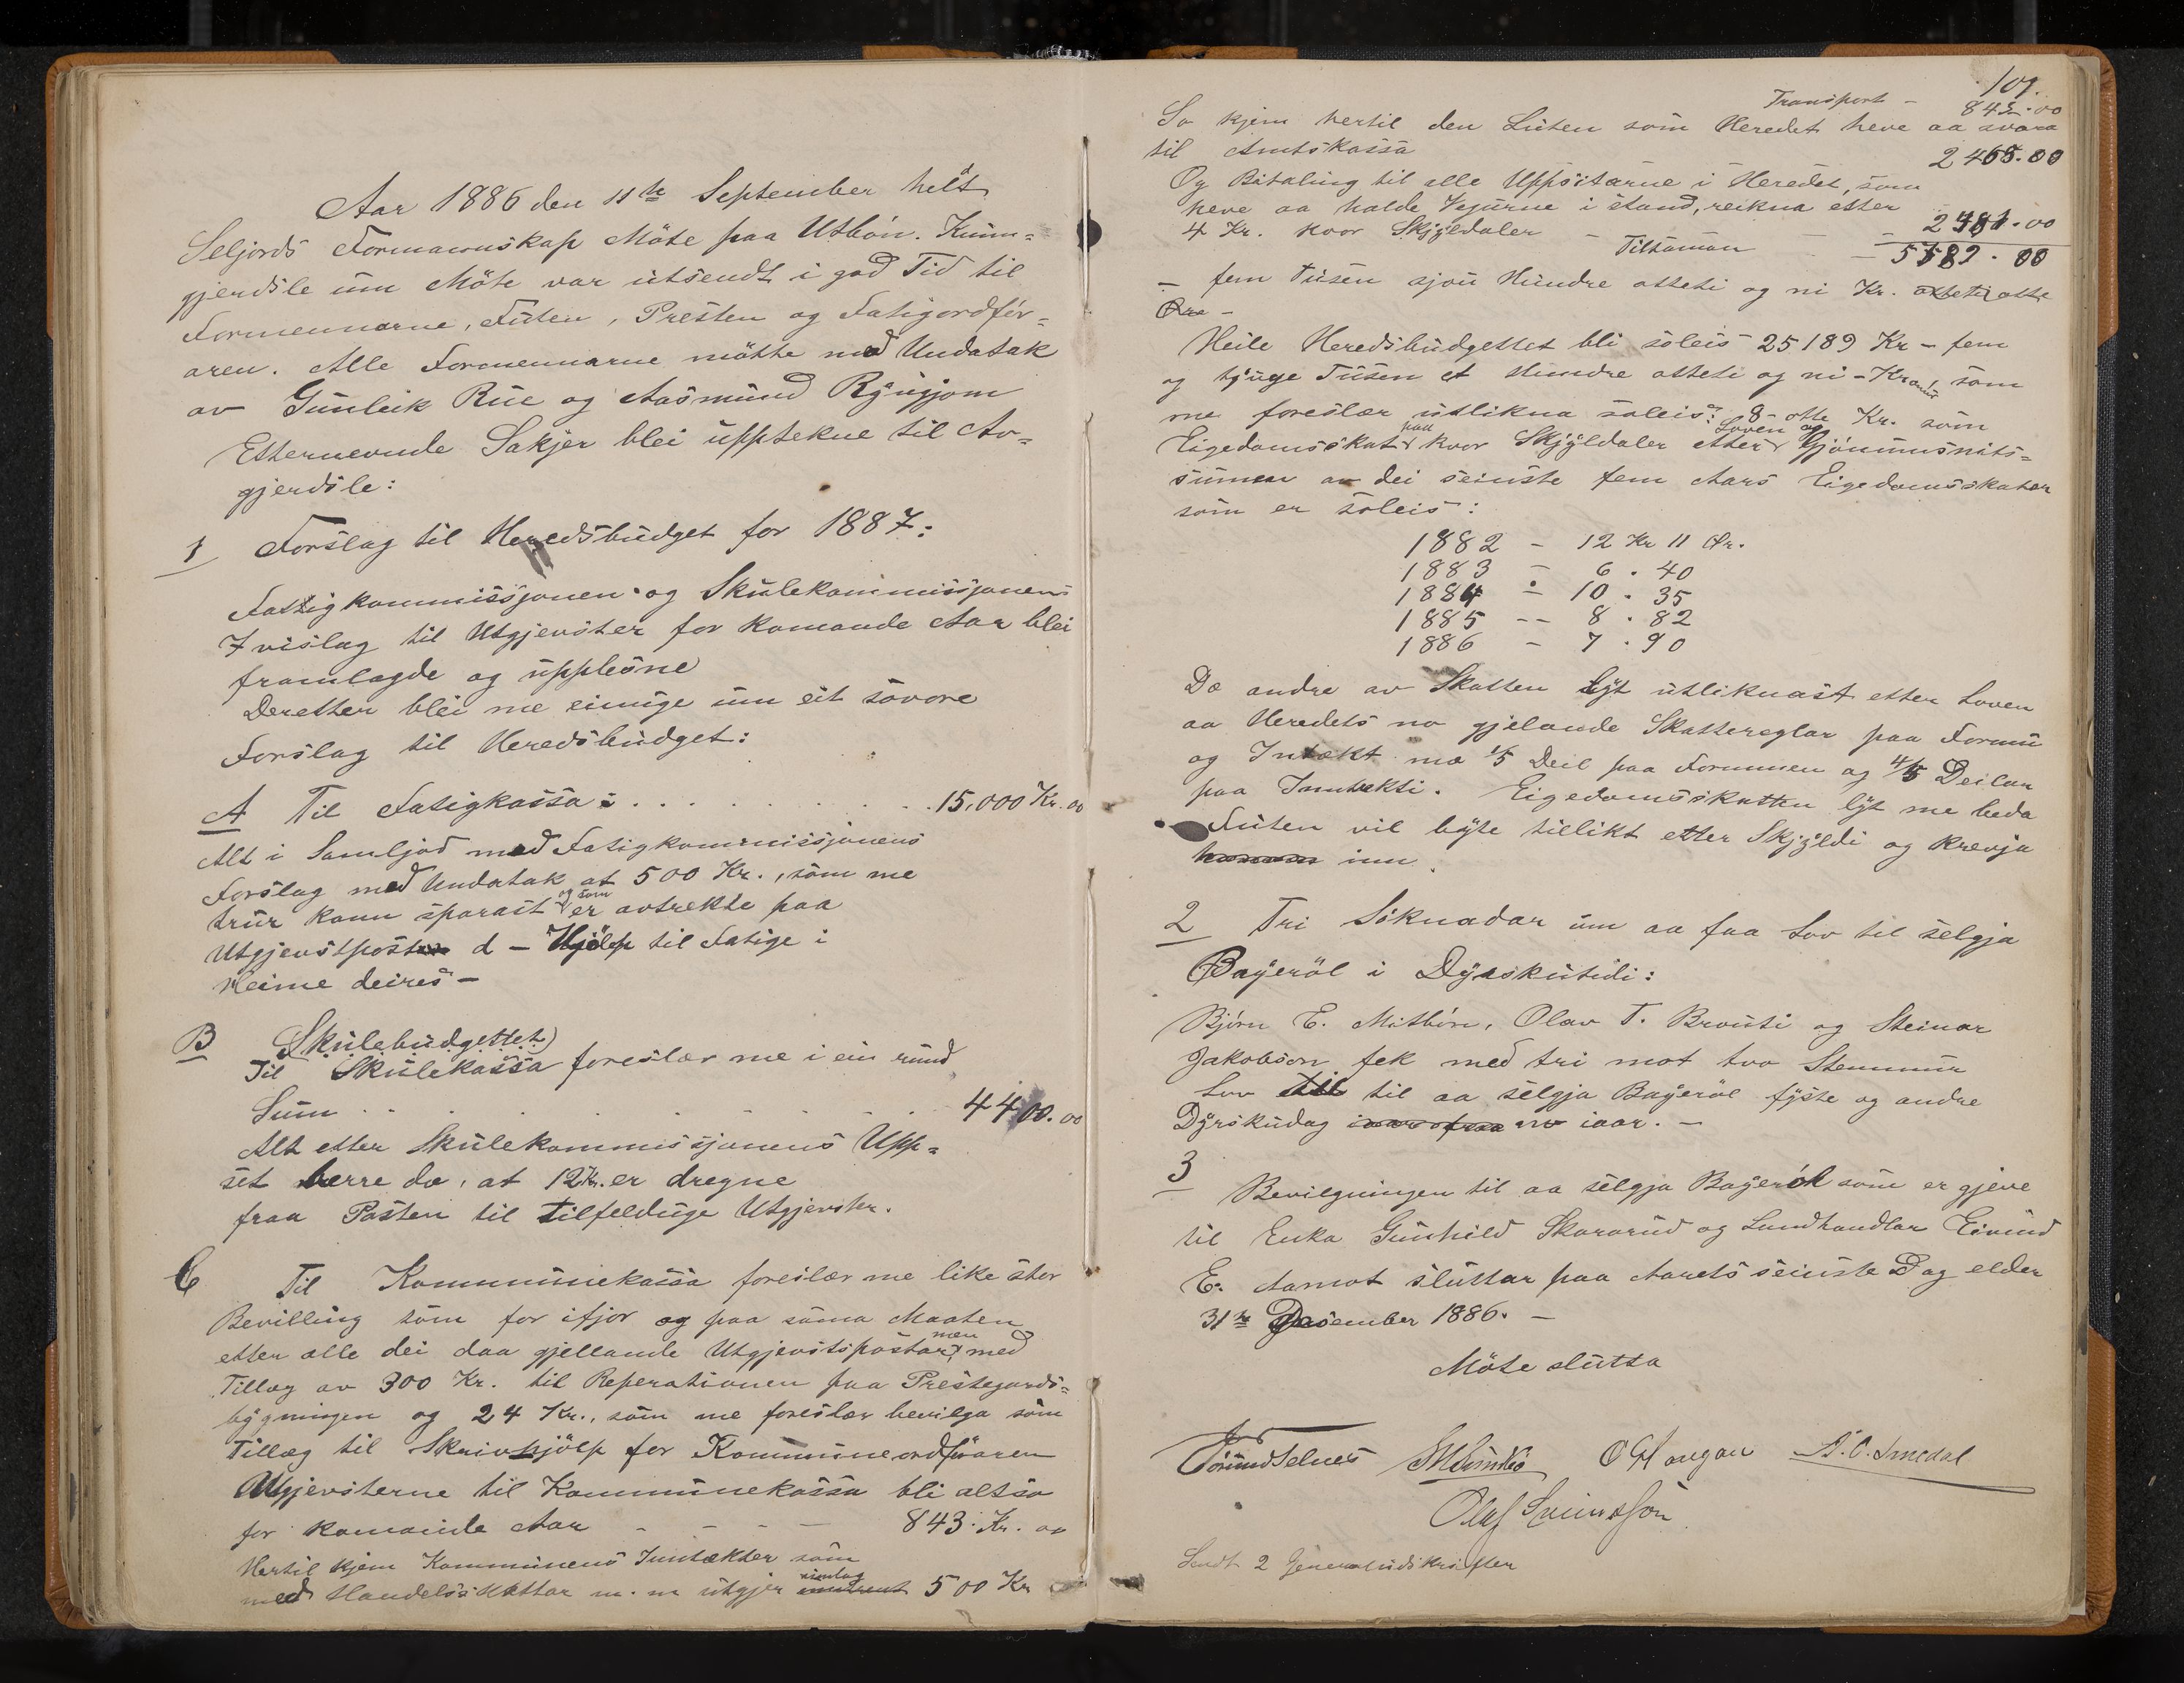 Aar 1886 den 11te September helt
Seljords Formannskap Möte paa Utbön. Kunn=
gjerdsle um Möte var utsendt i god Tid til
Formennarne, Futen, Presten og Fatigordför=
aren. Alle Formennarne mötte med Undatak
av Gunleik Rue og Aasmund Rÿngjom
Etternevnde Sakjer blei upptekne til Av=
gjerdsle:
1 Forslag til Heredsbudget for 1887:
Fattigkommissjonen og Skulekommissjonens
Tvislag til Utgjevster for komande Aar blei
framlagde og upplesne
Deretter blei me einige um eit sovore
Forslag til Heredsbudget:
A Til Fatigkassa: . . . . . . . . . 15,000 Kr. 00
Alt i Samljod med Fatigkommissjonens
Forslag med Undatak at 500 Kr., som me
trur kann sparast og som er avtrekte paa
Utgjevstposten d – Hjölp til Fatige i
Heime deires –
B (Skulebudgettet)
Til Skulekassa foreslær me i ein rund
Sum . . . . . . . . 4400.00
Alt etter Skulekommissjonens Upp=
set berre da, at 12 Kr. er dregne
fraa Posten til tilfelduge Utgjevster.
C Til Kommunekassa foreslær me like stor
Bevilling som for ifjor og paa sama Maaten
etter alle dei daa gjellande Utgjevstspostar, men med
Tillæg av 300 Kr. til Reperationen paa Prestegards=
bÿgningen og 24 Kr., som me foreslær bevilga som
Tillæg til Skrivhjölp for Kommuneordföraren
Utgjevsterne til Kommunekassa bli altso
for komande Aar - - - - 843 Kr. 00
Hertil kjem Kommunens Inntækter som
med Handelsskattar m. m utgjer rimlag 500 Kr
109.
Transport – 843.00
So kjem hertil den Luten som Heredet heve aa svara
til Amtskassa 2465.00
Og Bitaling til alle Uppsitarne i Heredet, som
heve aa halde Vegurne i stand, reikna etter
4 Kr. kvor Skjÿldaler – – – 2481.00
Tilsaman – – 5789.00
– fem Tusen sjou Hundre otteti og ni Kr. otteti otte
Øre –
Heile Heredsbudgettet bli soleis 25189 Kr – fem
og tjuge Tusen et Hundre otteti og ni – Kronur, som
me foreslær utlikna soleis: 8 – otte Kr. som
Eigedomsskat paa kvor Skjÿldaler etter Loven og Gjönumsnits=
summar av dei seinste fem Aars Eigedomsskatar
som er soleis:
1882 – 12 Kr 11 Ør.
1883 – 6 . 40
1884 – 10 . 35
1885 -- 8 . 82
1886 – 7 . 90
Dæ andre av Skatten lÿt utliknast etter Loven
aa Heredets no gjelande Skattereglar paa Formu
og Intækt mæ 1/5 Deil paa Formuen og 4/5 Deilar
paa Inntækti. Eigedomsskatten lÿt me beda
Futen vil bÿte tillikt etter Skjÿldi og krevja
honom inn.
2 Tri Söknadar um aa faa Lov til selgja
Bayeröl i Dÿrskutidi:
Björn E. Mitbön, Olav T. Brouti og Steinar
Jakobson fek med tri mot tvo Stemmur
Lov til aa selgja Bayeröl fÿste og andre
Dÿrskudag iaar. –
3
Bevilgningen til aa selgja Bayeröl som er gjeve
til Enka Gunhild Skararud og Landhandlar Eivind
E. Aamot sluttar paa Aarets seinste Dag elder
31te Desember 1886. –
Möte slutta
Torund Selnes O H Langan A. O. Smedal
Olaf Sveinsson
Sendt 2 Generaludskrifter